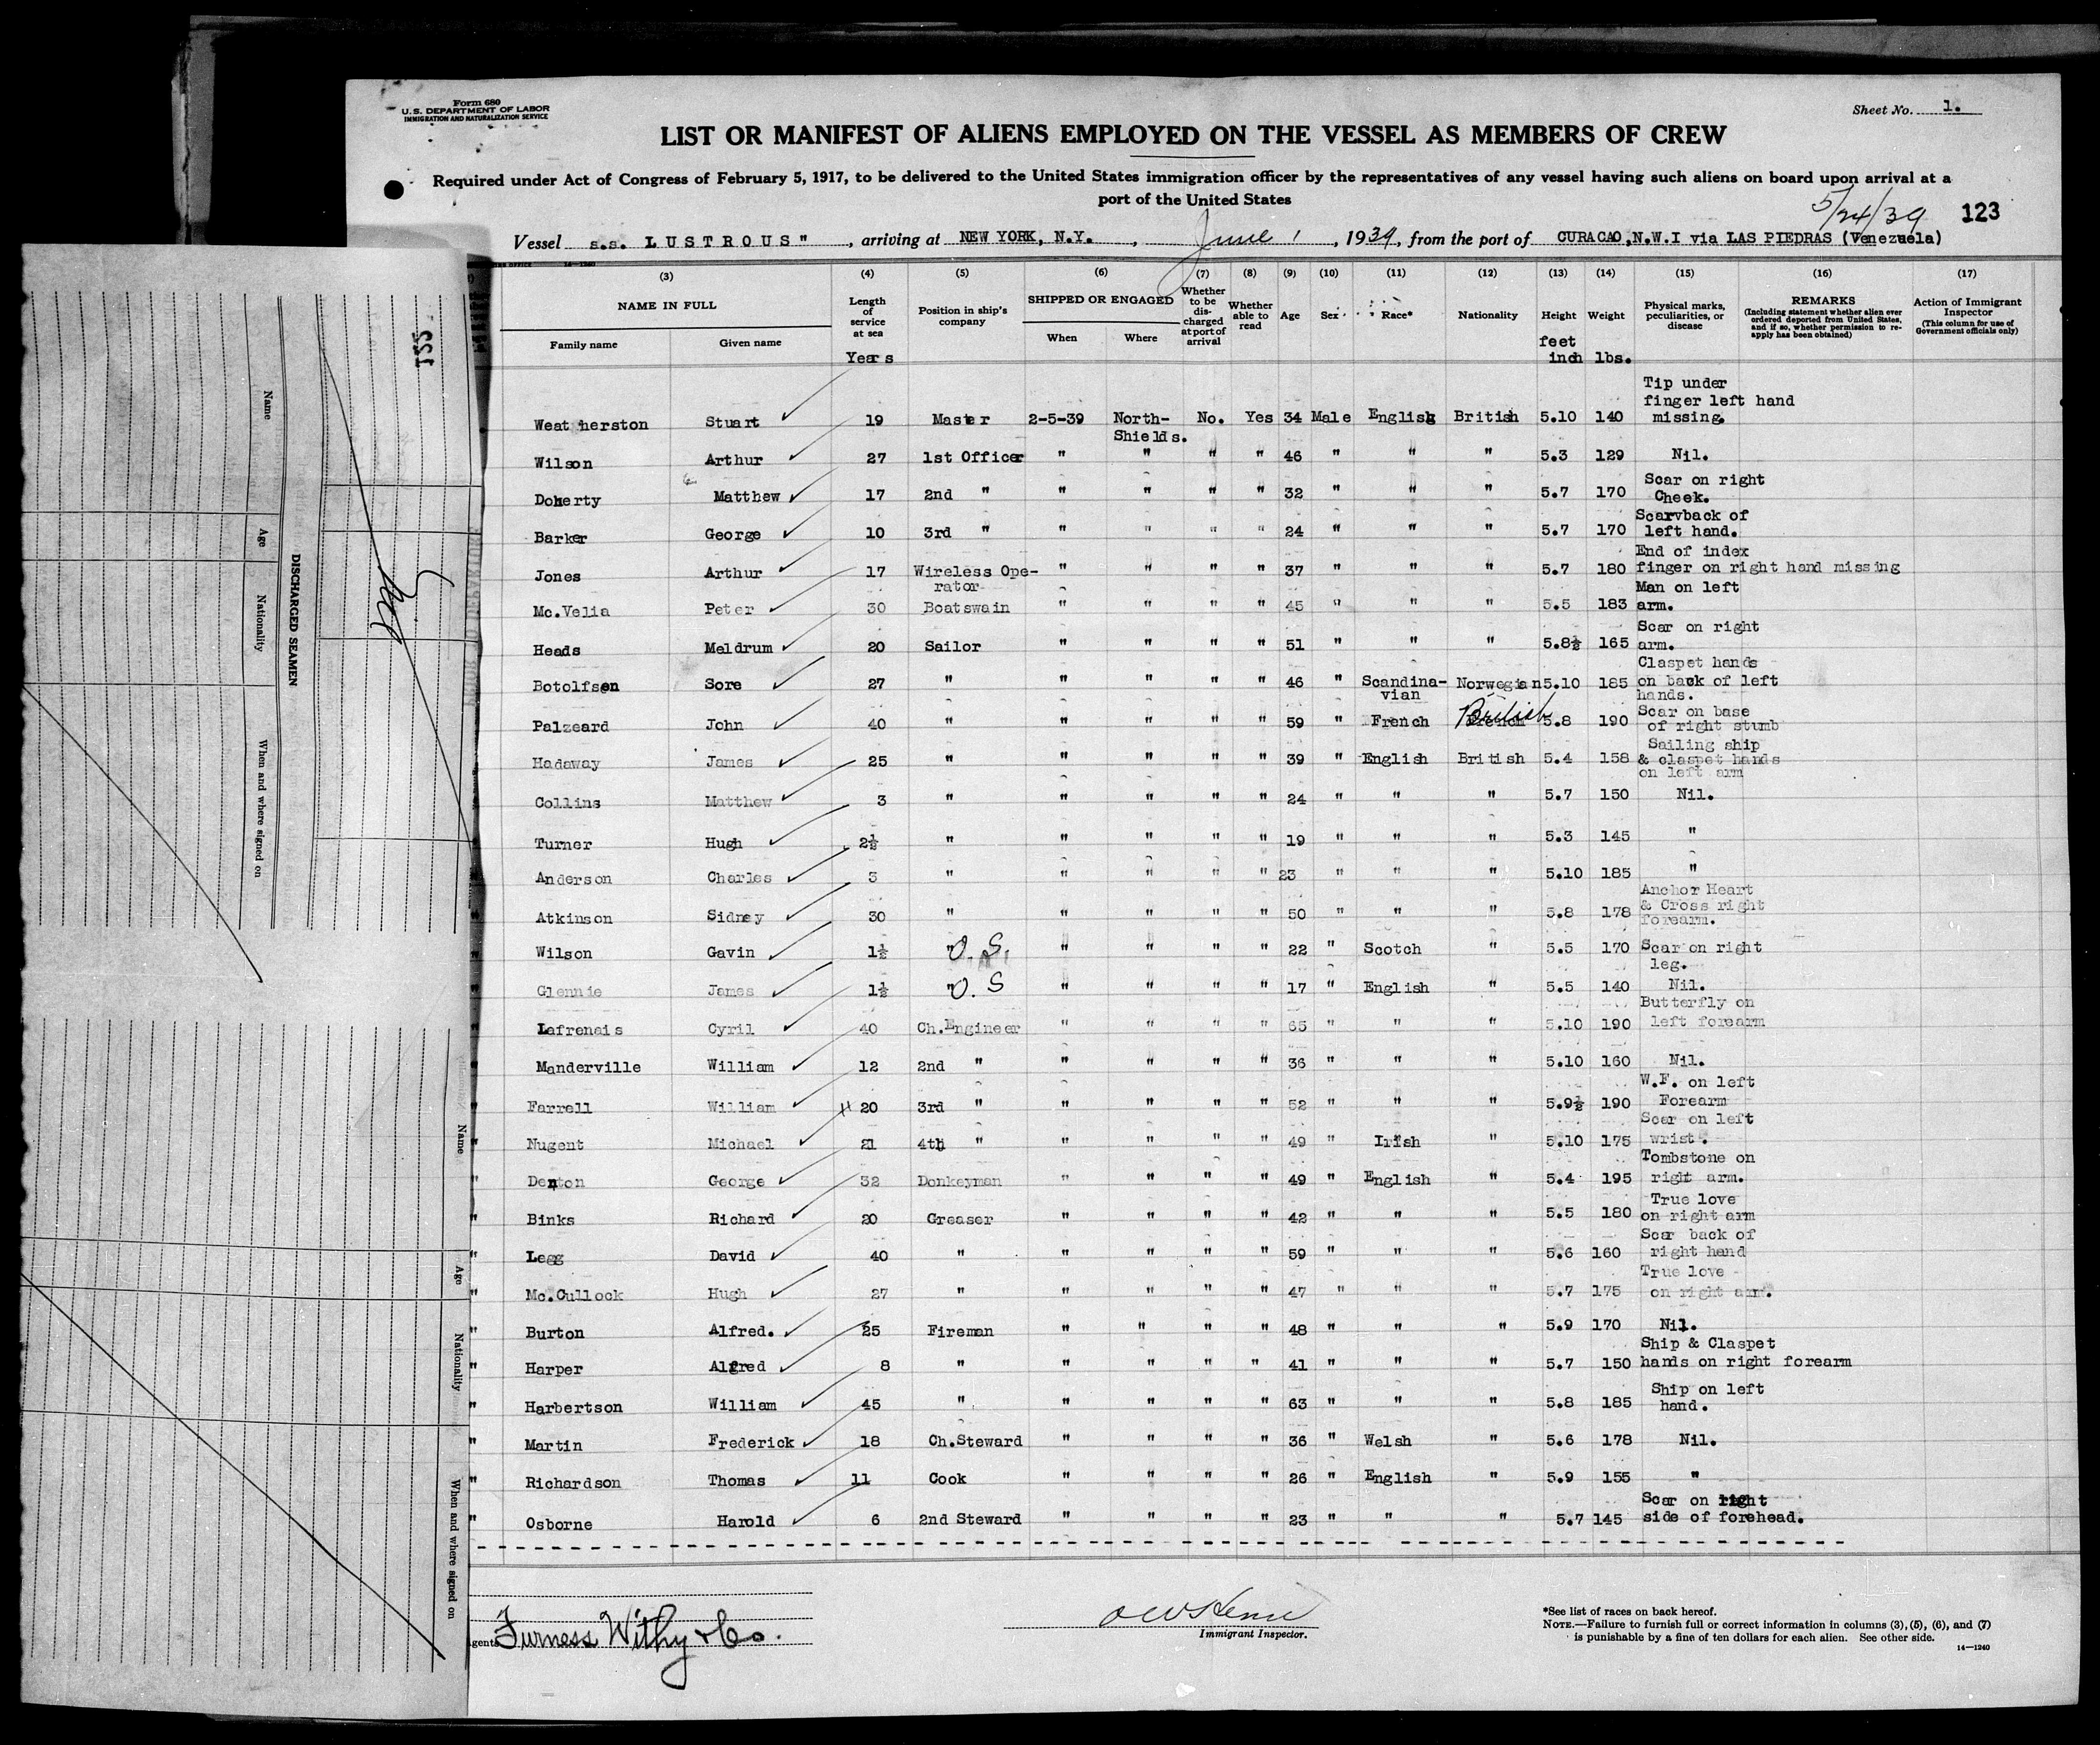 Form 680
U.S. DEPARTMENT OF LABOR
IMMIGRATION AND NATURALIZATION SERVICE
Sheet No. 1.
LIST OR MANIFEST OF ALIENS EMPLOYED ON THE VESSEL AS MEMBERS OF CREW
Required under Act of Congress of February 5, 1917, to be delivered to the United States immigration officer by the representatives of any vessel having such aliens on board upon arrival at a
port of the United States
5/24/39 123
Vessel s.s. LUSTROUS" , arriving at NEW YORK, N.Y. , June 1 , 1939, from the port of CURACAO,N.W.I via LAS PIEDRAS (Venezuela)
(3) (4) (5) (6) (7) (8) (9) (10) (11) (12) (13) (14) (15) (16) (17)
NAME IN FULL Family name Given name
Length of service at sea Years
Position in ship's company
SHIPPED OR ENGAGED When Where
Whether to be discharged at port of arrival
Whether able to read
Age Sex Race* Nationality
Height feet inch Weight lbs.
Physical marks, peculiarities, or disease
REMARKS (Including statement whether alien ever ordered deported from United States, and if so, whether permission to re-apply has been obtained)
Action of Immigrant Inspector (This column for use of Government officials only)
Weatherston Stuart 19 Master 2-5-39 North-Shields. No. Yes 34 Male English British 5.10 140 Tip under finger left hand missing.
Wilson Arthur 27 1st Officer " " " " 46 " " " 5.3 129 Nil.
Doherty Matthew 17 2nd " " " " " 32 " " " 5.7 170 Scar on right Cheek.
Barker George 10 3rd " " " " " 24 " " " 5.7 170 Scarvback of left hand.
Jones Arthur 17 Wireless Ope-rator " " " " 37 " " " 5.7 180 End of index finger on right hand missing
Mc.Velia Peter 30 Boatswain " " " " 45 " " " 5.5 183 Man on left arm.
Heads Meldrum 20 Sailor " " " " 51 " " " 5.8½ 165 Scar on right arm.
Botolfsen Sore 27 " " " " " 46 " Scandina-vian Norwegian 5.10 185 Claspet hands on back of left hands.
Palzeard John 40 " " " " " 59 " French French British 5.8 190 Scar on base of right stumb
Hadaway James 25 " " " " " 39 " English British 5.4 158 Sailing ship & claspet hands on left arm
Collins Matthew 3 " " " " " 24 " " " 5.7 150 Nil.
Turner Hugh 2½ " " " " " 19 " " " 5.3 145 "
Anderson Charles 3 " " " " " 23 " " " 5.10 185 "
Atkinson Sidney 30 " " " " " 50 " " " 5.8 178 Anchor Heart & Cross right forearm.
Wilson Gavin 1½ " O.S. " " " " 22 " Scotch " 5.5 170 Scar on right leg.
Glennie James 1½ " O.S " " " " 17 " English " 5.5 140 Nil.
Lafrenais Cyril 40 Ch.Engineer " " " " 65 " " " 5.10 190 Butterfly on left forearm
Manderville William 12 2nd " " " " " 36 " " " 5.10 160 Nil.
Farrell William 20 3rd " " " " " 52 " " " 5.9½ 190 W.F. on left Forearm
Nugent Michael 21 4th " " " " " 49 " Irish " 5.10 175 Scar on left wrist.
Denton George 32 Donkeyman " " " " 49 " English " 5.4 195 Tombstone on right arm.
Binks Richard 20 Greaser " " " " 42 " " " 5.5 180 True love on right arm
Legg David 40 " " " " " 59 " " " 5.6 160 Scar back of right hand
Mc.Cullock Hugh 27 " " " " " 47 " " " 5.7 175 True love on right arm.
Burton Alfred. 25 Fireman " " " " 48 " " " 5.9 170 Nil.
Harper Alfred 8 " " " " " 41 " " " 5.7 150 Ship & Claspet hands on right forearm
Harbertson William 45 " " " " " 63 " " " 5.8 185 Ship on left hand.
Martin Frederick 18 Ch.Steward " " " " 36 " Welsh " 5.6 178 Nil.
Richardson Thomas 11 Cook " " " " 26 " English " 5.9 155 "
Osborne Harold 6 2nd Steward " " " " 23 " " " 5.7 145 Scar on right side of forehead.
Agents Furness Withy & Co.
Immigrant Inspector.
*See list of races on back hereof.
NOTE.—Failure to furnish full or correct information in columns (3), (5), (6), and (7)
is punishable by a fine of ten dollars for each alien. See other side.
14—1240
122
Nil
DISCHARGED SEAMEN
Name Age Nationality When and where signed on
Name Age Nationality When and where signed on